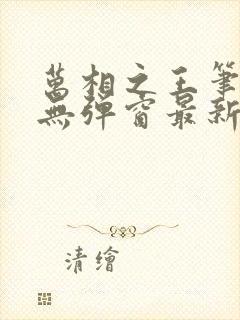 萬相之王筆
無彈窗最新
清繪